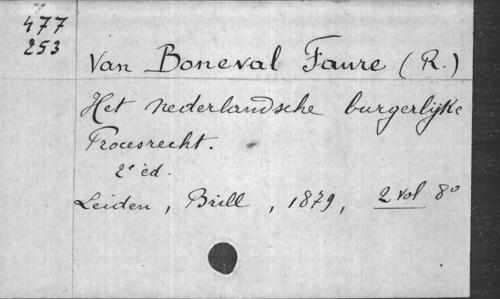 477
253
Van Boneval Faure (R.)
Het nederlandsche burgerlijke
Procesrecht.
2e éd.
Leiden, Brill, 1879, 2 vol 8o